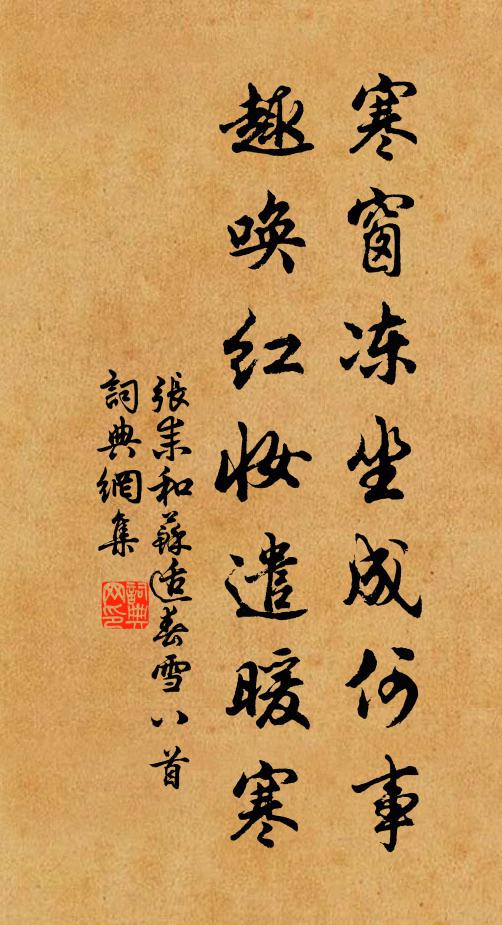 寒窗冻坐成何事
趣唤红妆遣暖寒
張耒和蘇适春雪八首
詞典網集
詞典网印